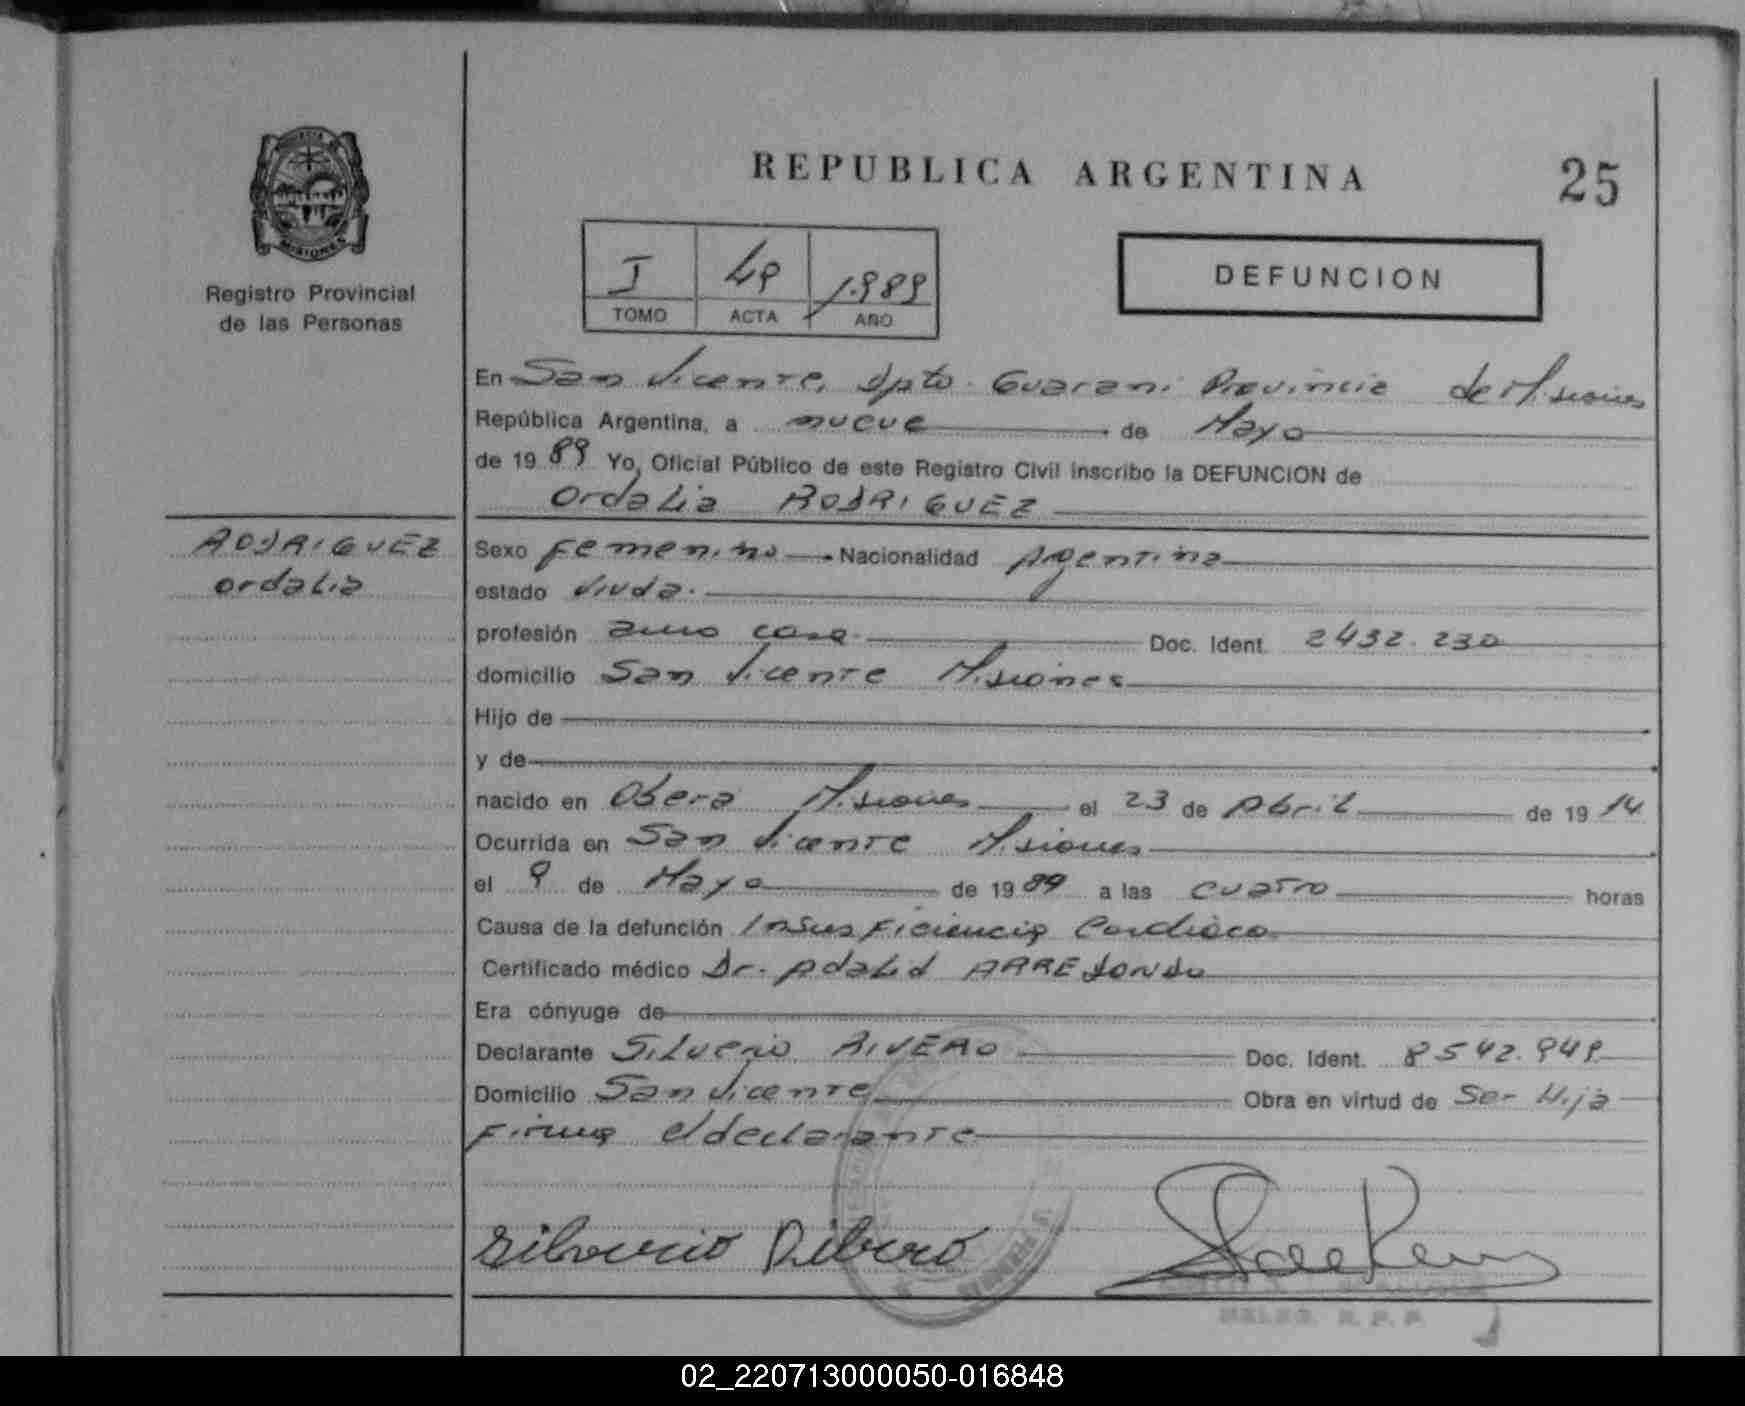 REPUBLICA ARGENTINA
25
MISIONES
Registro Provincial
de las Personas
I 49 1.989
TOMO ACTA AÑO
DEFUNCION
En San Vicente, Dpto. Guarani Provincia de Misiones
República Argentina, a nueve de Mayo
de 19 89 Yo, Oficial Público de este Registro Civil inscribo la DEFUNCION de
Ordalia RODRIGUEZ
RODRIGUEZ
Ordalia
Sexo Femenino Nacionalidad Argentina
estado Viuda.
profesión ama casa. Doc. Ident. 2432.230
domicilio San Vicente Misiones
Hijo de
y de
nacido en Obera Misiones el 23 de Abril de 19 14
Ocurrida en San Vicente Misiones
el 9 de Mayo de 19 89 a las cuatro horas
Causa de la defunción Insuficiencia Cardiaca
Certificado médico Dr. Adalid ARREDONDO
Era cónyuge de
Declarante Silverio RIVERO Doc. Ident. 8542.949
Domicilio San Vicente Obra en virtud de Ser Hijo
Firma el declarante
Silverio Ribero
R. P. P.
02_220713000050-016848